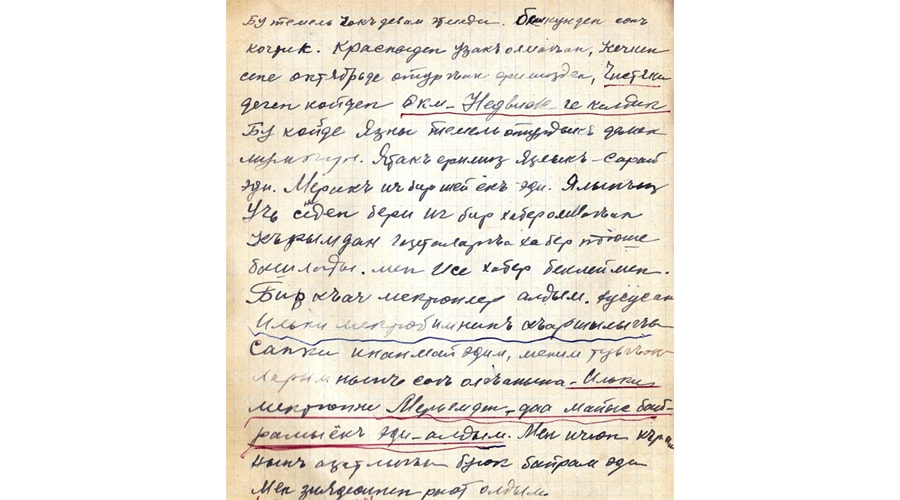 Бу темель чокъ девам этмеди. Беш кунден сонъ
кочтик. Красныйден узакъ олмагъан, кечкен
сене октябрьде отургъан еримизден, Чистяки
деген койден 8 км - Недвлов - ге келдик
Бу койде Язны темель отурдыкъ демек
мумкун. Ятакъ еримиз язлыкъ - сарай
эди. Меракъ ич бир шей ёкъ эди. Ялынъыз
Учь айден бери ич бир хабер олмагъан
Кърымдан газеталаргъа хабер тюше
башлады. Мен исе хабер беклеймен.
Бир къач мектюплер алдым. Хусусан
Ильки мектюбимнинъ къаршылыгъы
Санки инанмай эдим, меним тувгъан
ларымнынъ сагъ олгъанына - Ильки
мектюпни Мерьемден - даа майыс бай-
рамы ёкъ эди - алдым. Мен ичюн Къры
нынъ азатлыгъы буюк байрам эди
Мен зиядесинен рает олдым.